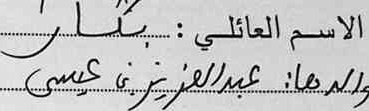 الاسم العائلي : بكار
والدها: عبدالعزيز بن عيسى